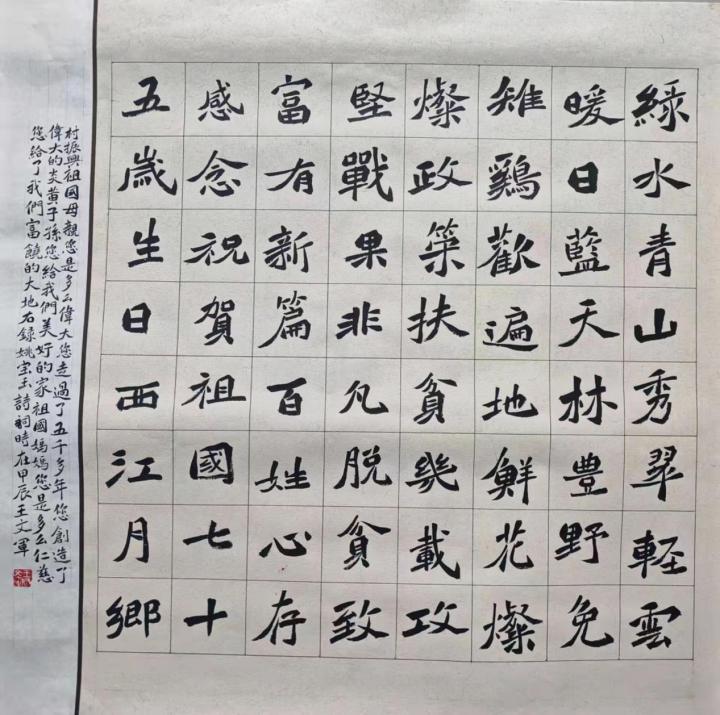 綠水青山秀翠輕雲
暖日籃天林豊野免
雉鷄歡遍地鮮花燦
燦政策扶貧幾載攻
堅戰果非凡脫貧致
富有新篇百姓心存
感念祝賀祖國七十
五歲生日西江月鄉
村振興祖國母親您是多么偉大您走過了五千多年您創造了
偉大的炎黃子孫您給我們美好的家祖國媽媽您是多么仁慈
您給了我們富饒的大地右錄姚宝玉詩詞時在甲辰王文軍